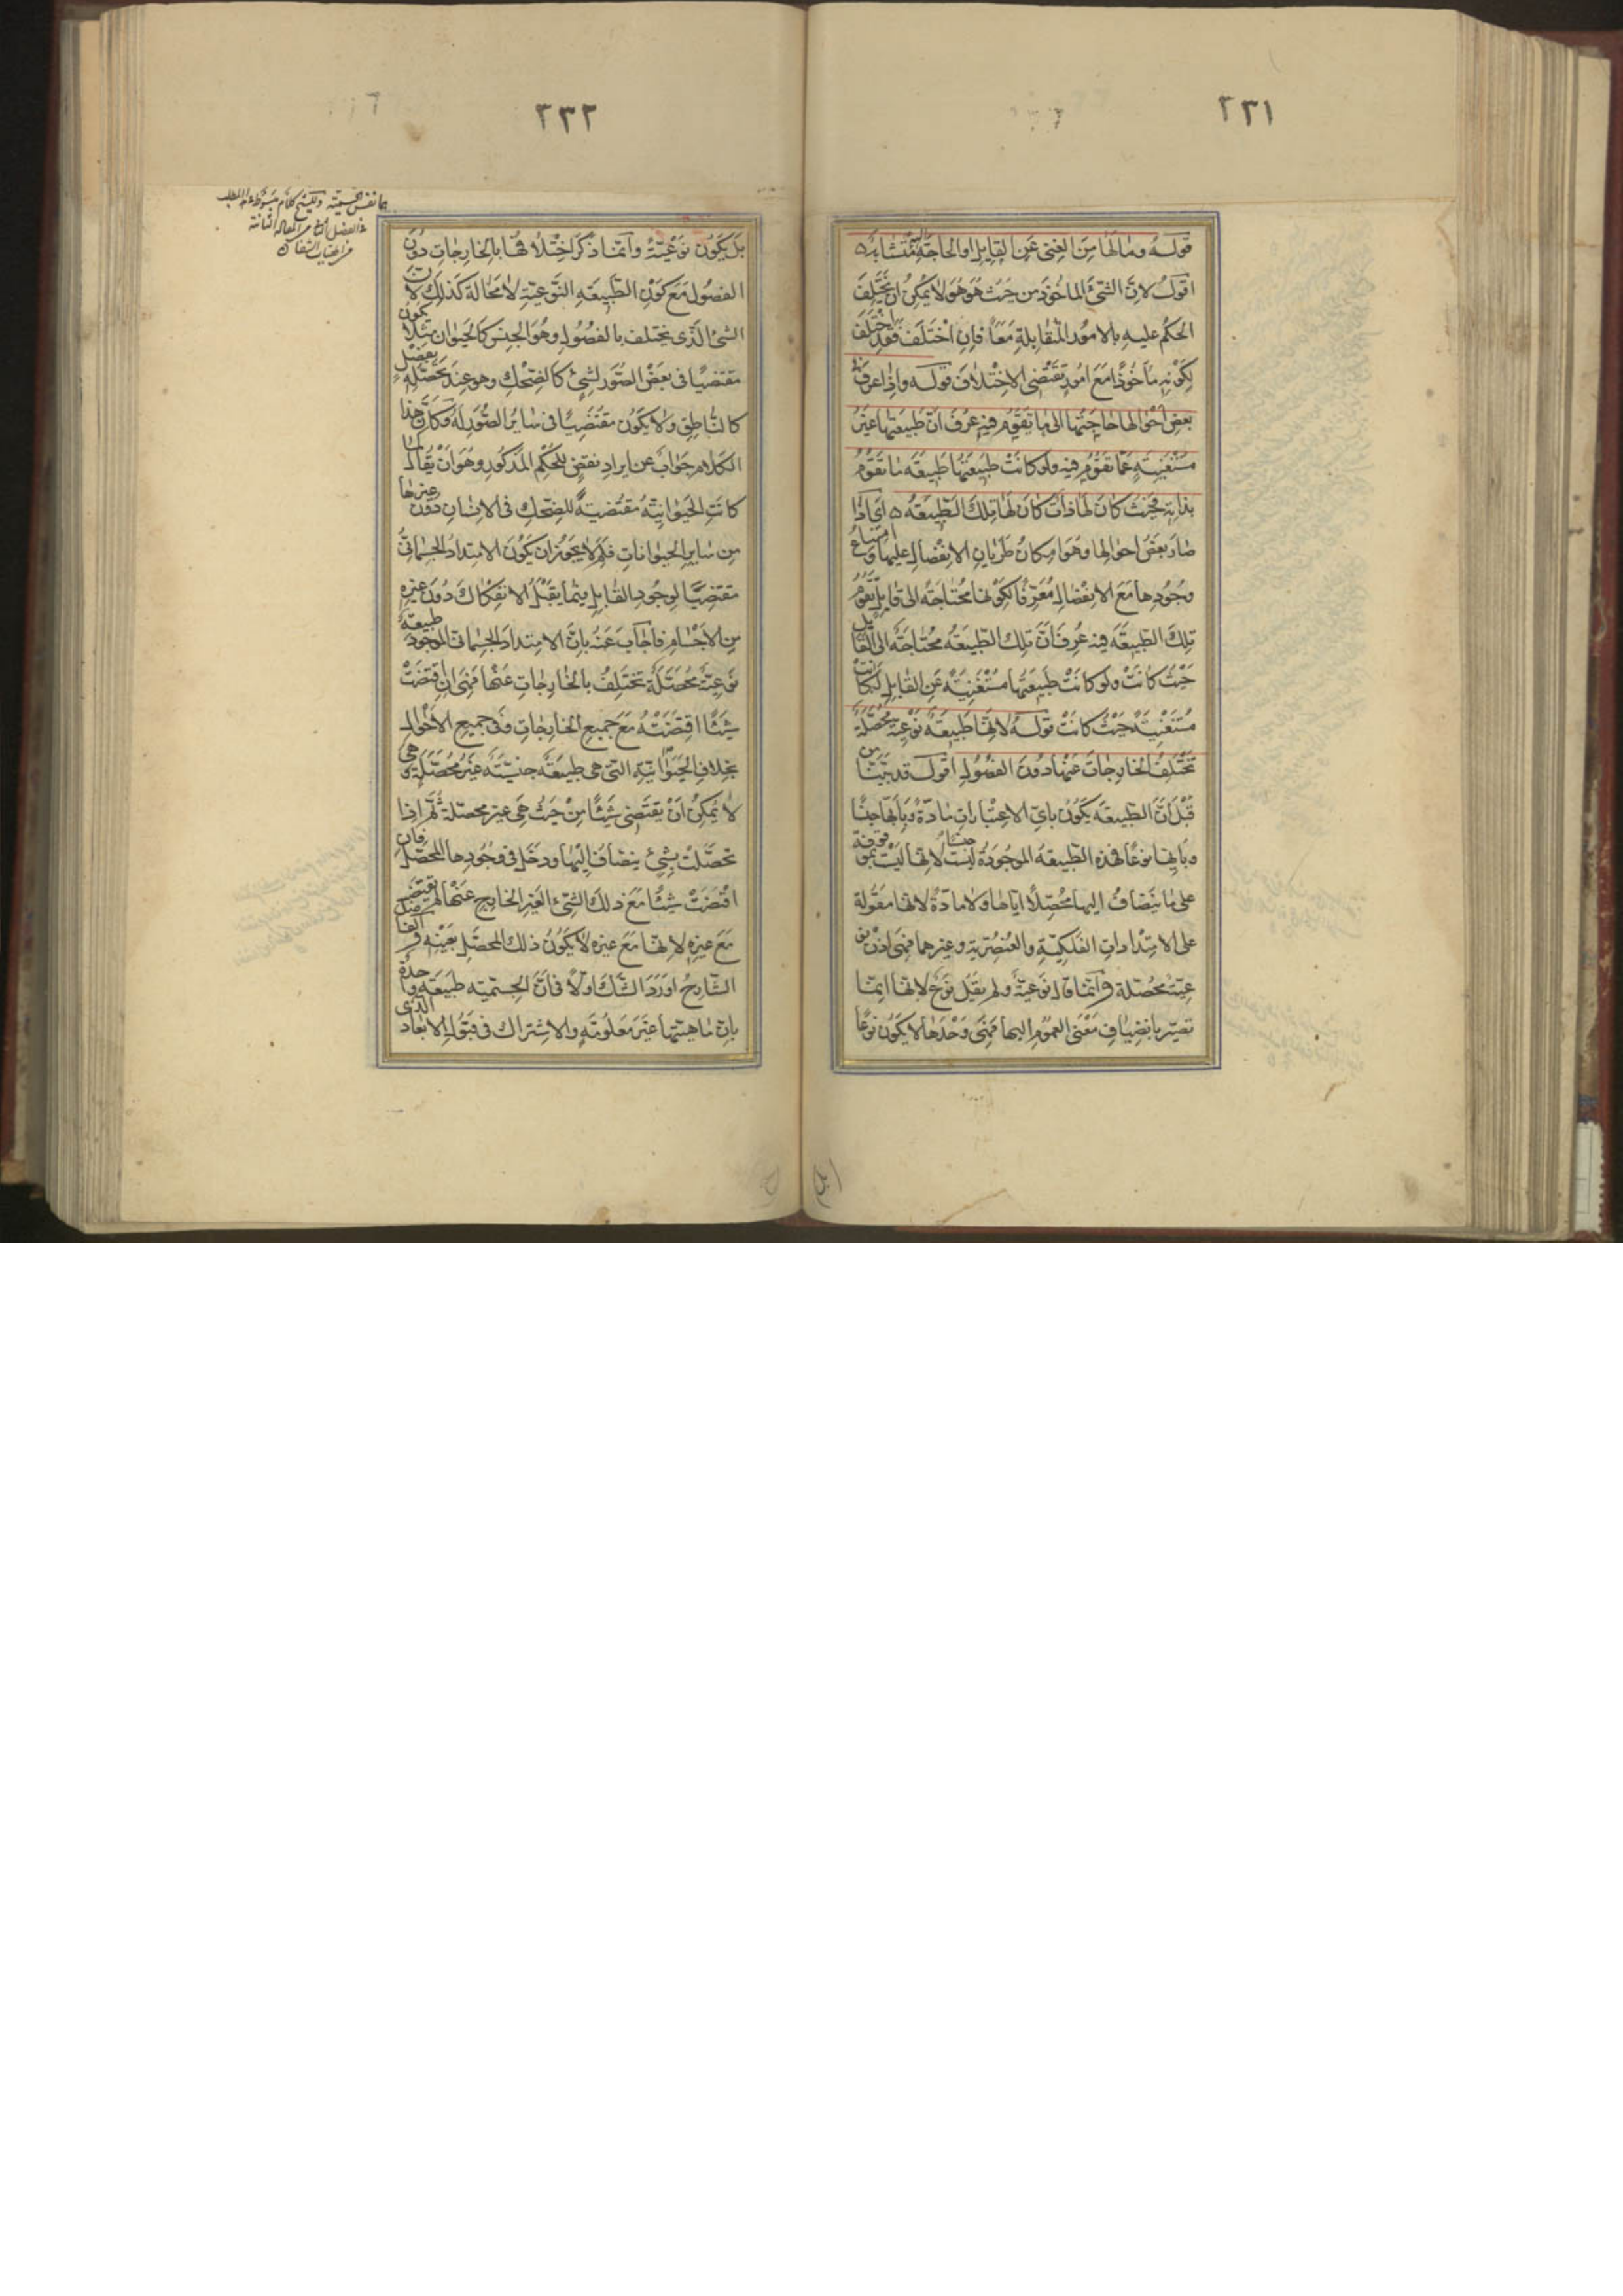 ٢٣١
قوله وما لها من الغنى عن القابل او الحاجة اليه متشابه
اقول لان الشئ الماخوذ من حيث هو هو لا يمكن ان يختلف
الحكم عليه بالامور المتقابلة معًا فان اختلف فقد اختلف
لكونه ماخوذًا مع امور تقتضى الاختلاف قوله واذا عرف
بعض احوالها حاجتها الى ما تقوم فيه عرف ان طبيعتها غير
مستغنية عما تقوم فيه ولو كانت طبيعتها طبيعة ما تقوم
بذاته فحيث كان لها ذات كان لها تلك الطبيعة اى اذا
صار بعض احوالها وهو امكان طريان الانفصال عليها وامتناع
وجودها مع الانفصال معرفًا لكونها محتاجة الى قابل تقوم
تلك الطبيعة فيه عرف ان تلك الطبيعة محتاجة الى القابل
حيث كانت ولو كانت طبيعتها مستغنية عن القابل لكانت
مستغنية حيث كانت قوله لانها طبيعة نوعية محصلة
تختلف بالخارجات عنها دون الفصول اقول قد بينا من
قبل ان الطبيعة يكون باى الاعتبارات مادة وبايها جنسًا
وبايها نوعًا فهذه الطبيعة الموجودة ليست جنسًا لانها ليست بموقوفة
على ما ينضاف اليها محصلًا اياها ولا مادة لانها مقولة
على الامتدادات الفلكية والعنصرية وغيرهما فهى اذن نو
عية محصلة وانما قال نوعية ولم يقل نوع لانها انما
تصير بانضياف معنى العموم اليها فهى وحدها لا يكون نوعًا
٢٣٢
بل يكون نوعية وانما ذكر اختلافها بالخارجات دون
الفصول مع كون الطبيعة النوعية لا محالة كذلك لان
الشئ الذى يختلف بالفصول وهو الجنس كالحيوان مثلًا يكون
مقتضيًا فى بعض الصور لشئ كالضحك وهو عند تحصله بفصل
كالناطق ولا يكون مقتضيًا فى ساير الصور له وكان هذا
الكلام جواب عن ايراد نقض للحكم المذكور وهو ان يقال لما
كانت الحيوانية مقتضية للضحك فى الانسان دون غيرها
من ساير الحيوانات فلم لا يجوز ان يكون الامتداد الجسمانى
مقتضيًا لوجود القابل فيما يقبل الانفكاك دون غيره
من الاجسام فاجاب عنه بان الامتداد الجسمانى الموجود طبيعة
نوعية محصلة تختلف بالخارجات عنها فهى ان اقتضت
شيئًا اقتضته مع جميع الخارجات وفى جميع الاحوال
بخلاف الحيوانية التى هى طبيعة جنسية غير محصلة وهى
لا يمكن ان يقتضى شيئًا من حيث هى غير محصلة ثم اذا
تحصلت بشئ ينضاف اليها ودخل فى وجودها المحصل فان
اقتضت شيئًا مع ذلك الشئ الغير الخارج عنها لم يقتض
مع غيره لانها مع غيره لا يكون ذلك المحصل بعينه والفاضل
الشارح اورد الشك اولًا فى ان الجسمية طبيعة واحدة
بان ماهيتها غير معلومة والاشتراك فى قبول الابعاد الذى
نفس الجسمية وللشيخ كلام مبسوط
الفصل من المقالة الثانية
من الهيات الشفا
بل